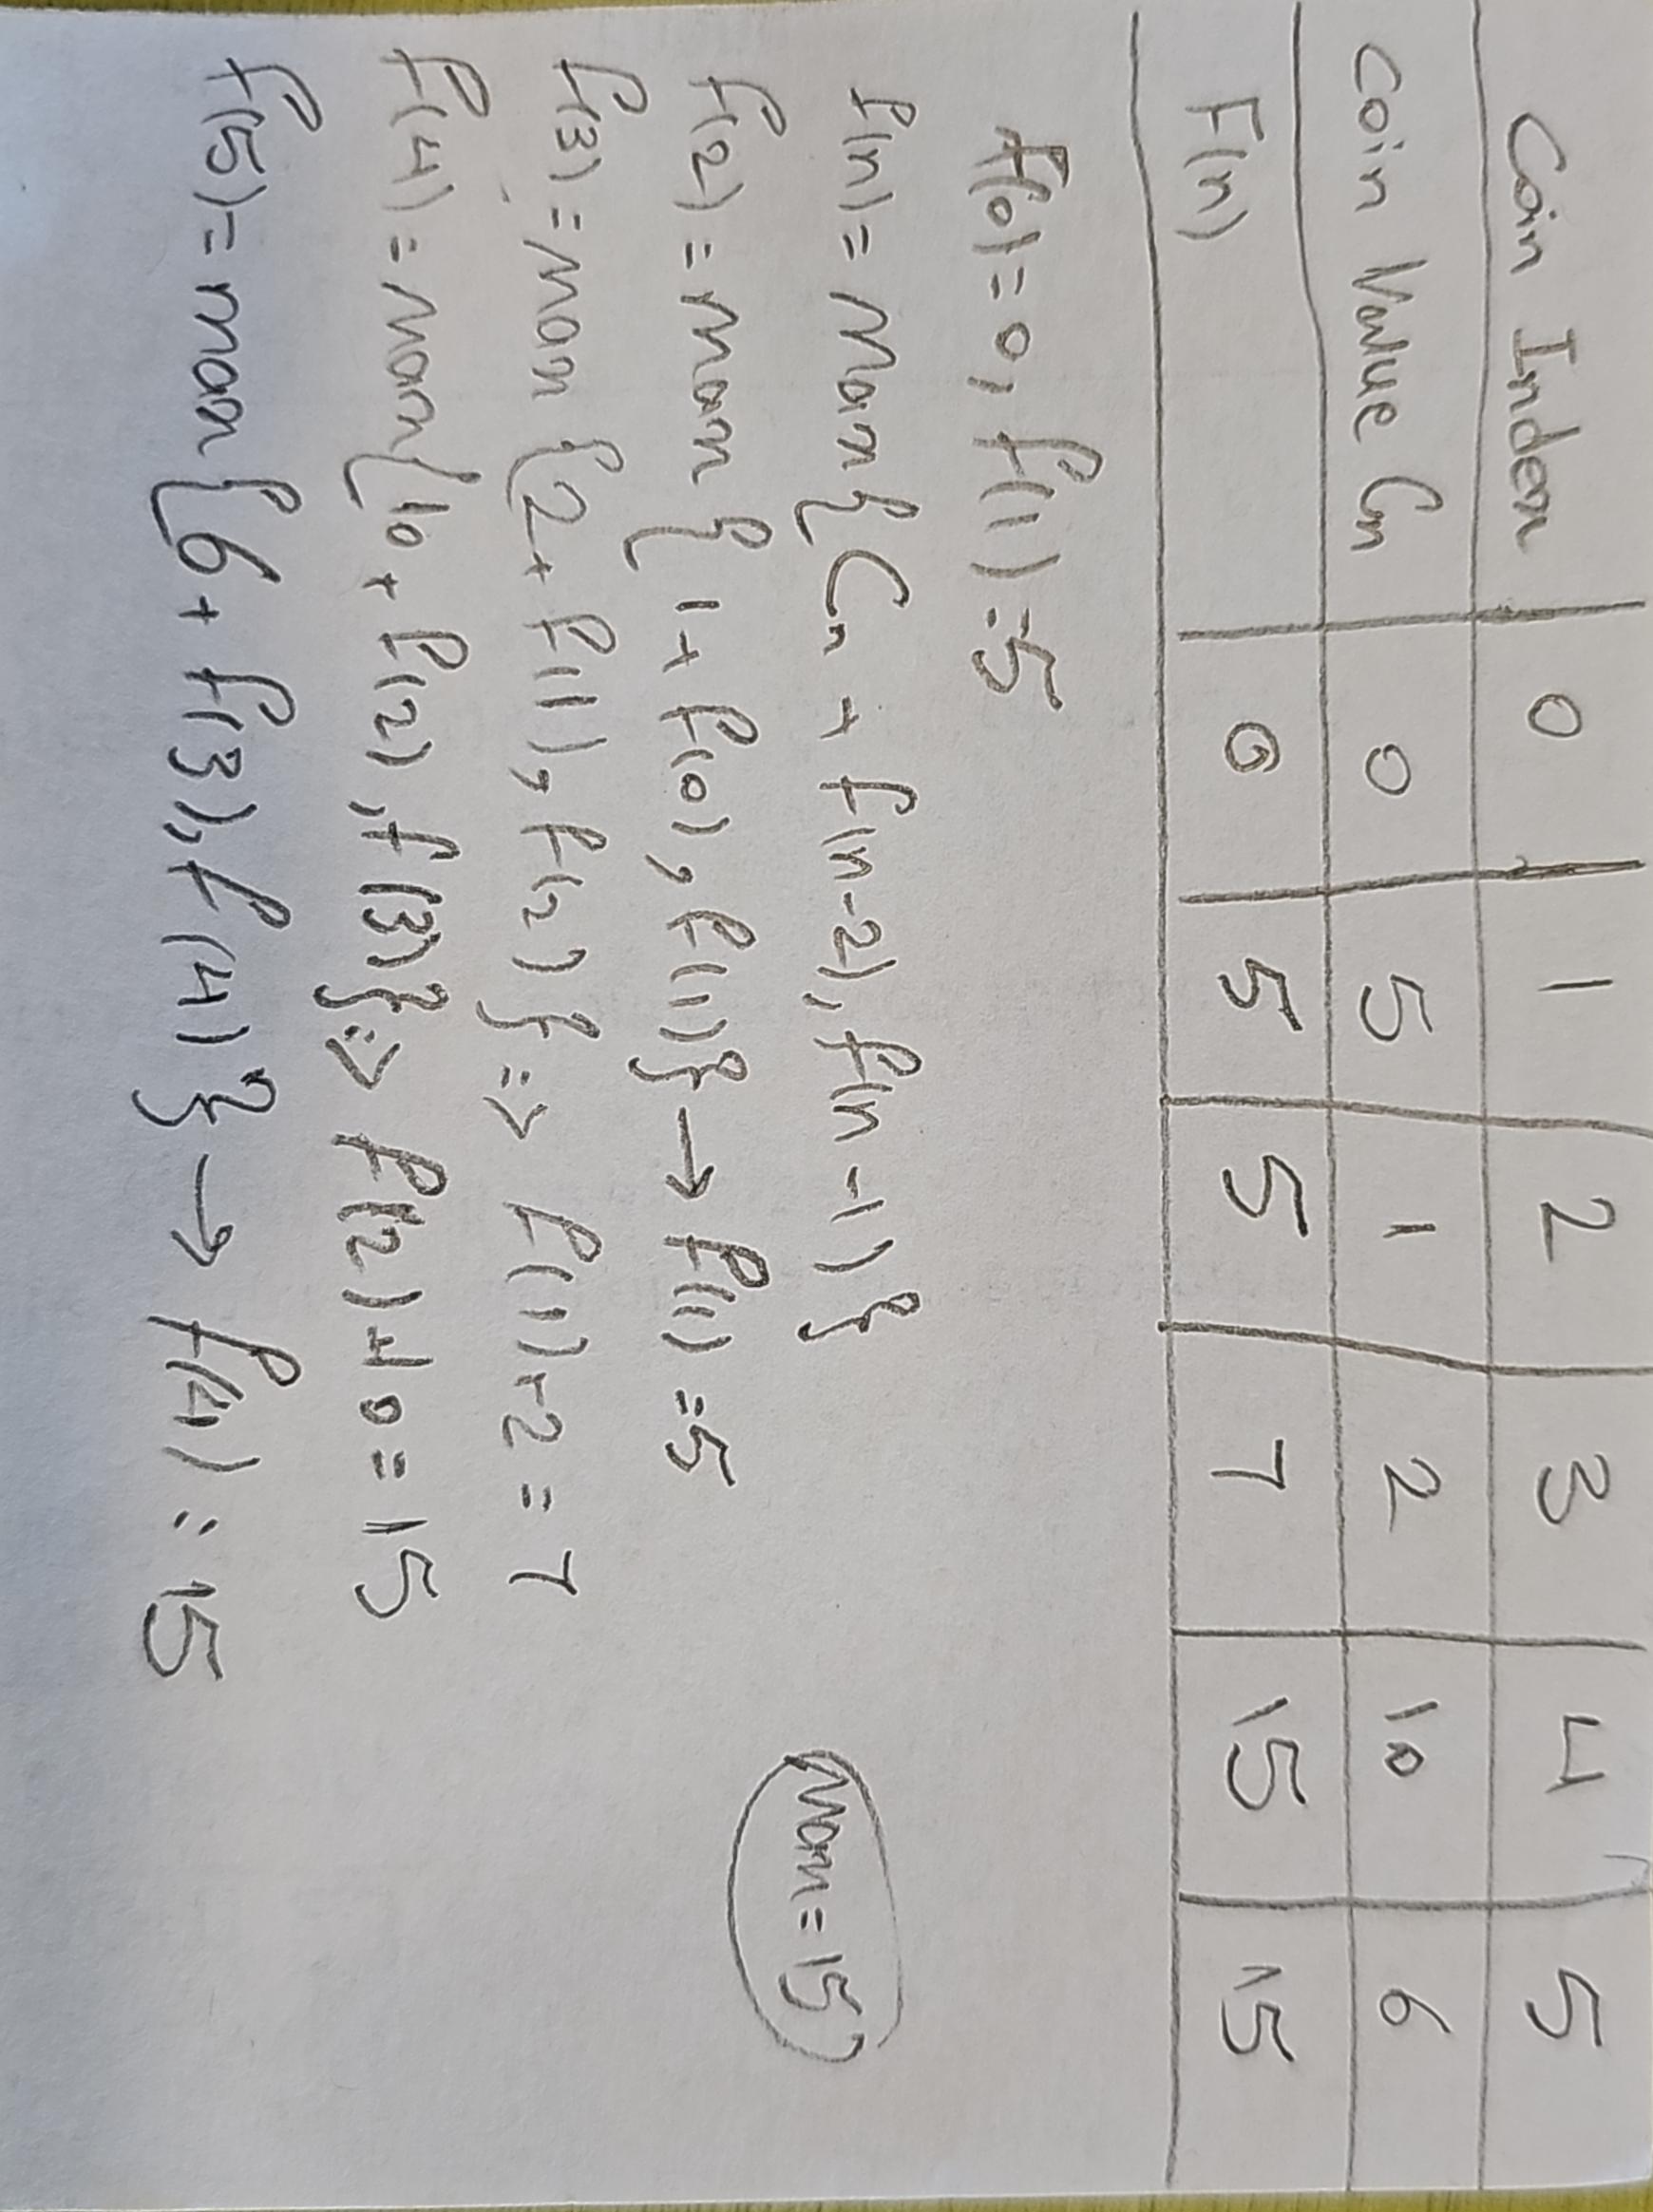 Coin Index 0 1 2 3 4 5
Coin Value Cn 0 5 1 2 10 6
F(n) 0 5 5 7 15 15
F(0)=0, f(1)=5
f(n)= Max{Cn + f(n-2), f(n-1)}
Max=15
f(2)=max{1+f(0), f(1)}→f(1)=5
f(3)=Max{2+f(1), f(2)}=> f(1)+2=7
f(4)=Max{10+f(2), f(3)}=> f(2)+10=15
f(5)=max{6+f(3), f(4)}→f(4):15